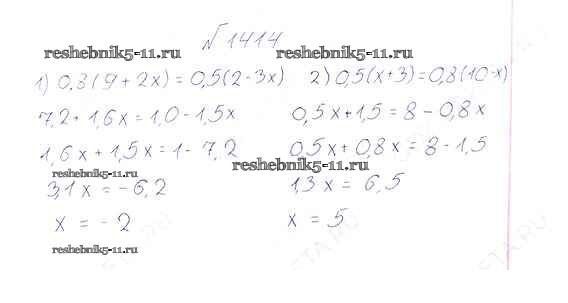 №1414
reshebnik5-11.ru reshebnik5-11.ru
1) 0,8(9+2x)=0,5(2-3x) 2) 0,5(x+3)=0,8(10-x)
7,2+1,6x=1,0-1,5x 0,5x+1,5=8-0,8x
1,6x+1,5x=1-7,2 0,5x+0,8x=8-1,5
reshebnik5-11.ru reshebnik5-11.ru
3,1x=-6,2 1,3x=6,5
x=-2 x=5
reshebnik5-11.ru